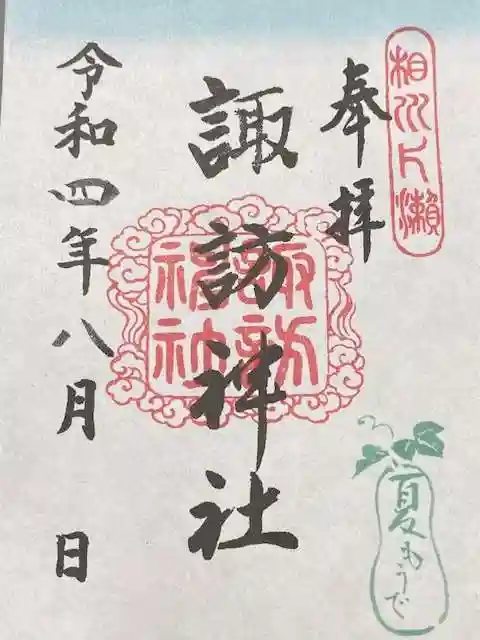 相州片瀬
奉拝
諏訪神社
諏訪
神社
令和四年八月 日
夏もうで